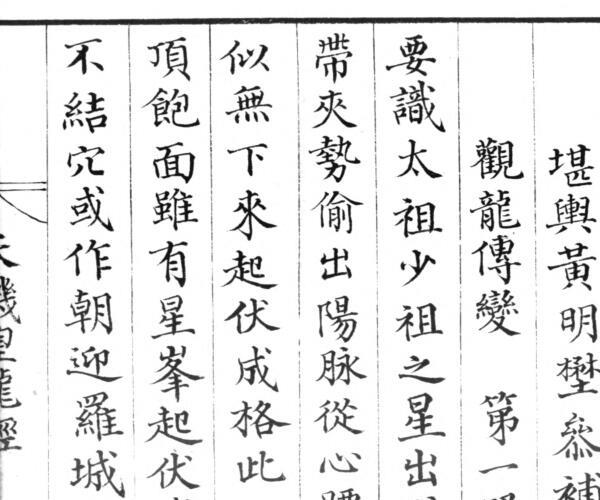 堪輿黃明懋叅補
觀龍傳變 第一
要識太祖少祖之星出
帶夾勢偷出陽脉從心
似無下來起伏成格此
頂飽面雖有星峯起伏
不結穴或作朝迎羅城
天機望龍經